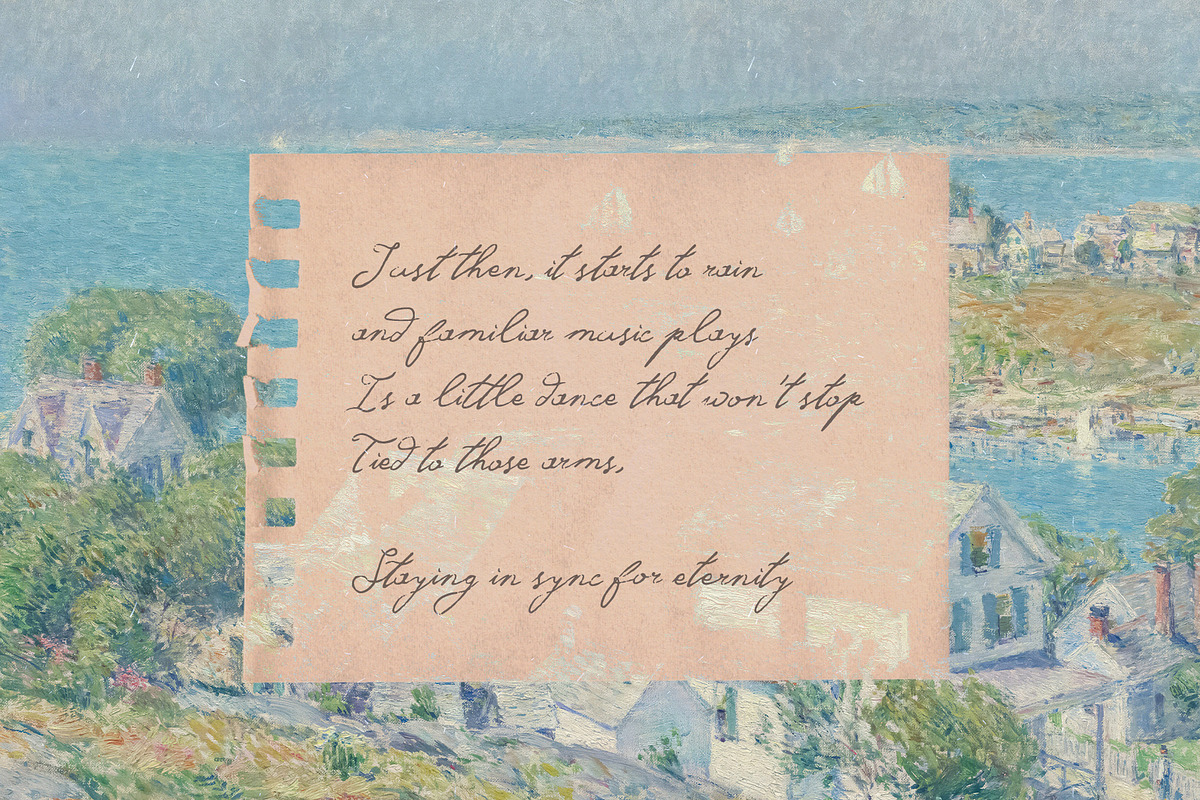 Just then, it starts to rain
and familiar music plays
Is a little dance that won't stop
Tied to those arms,
Staying in sync for eternity